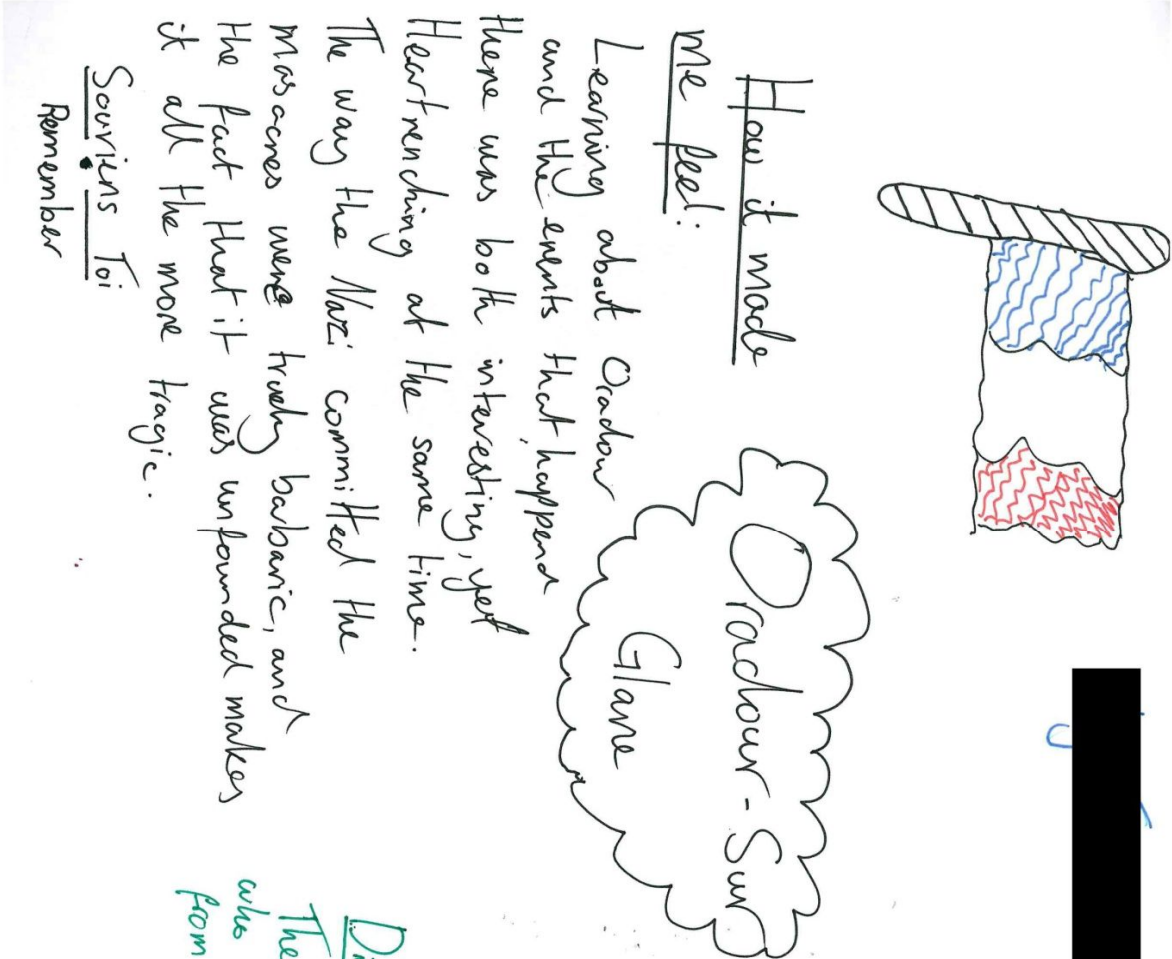 Oradour-Sur
Glane
How it made
me feel:
Learning about Oradour
and the events that happend
there was both interesting, yet
Heartrenching at the same time.
The way the Nazi committed the
masacres were truely barbaric, and
the fact that it was unfounded makes
it all the more tragic.
Souviens Toi
Remember
The
who
from